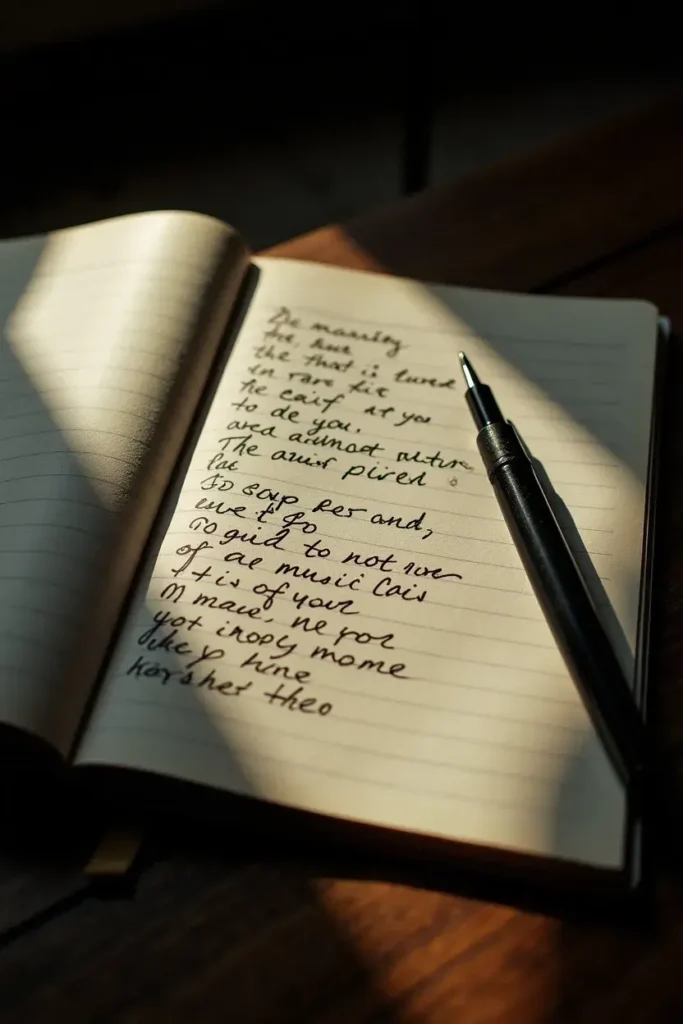 De manrley
the, but
the that is lured
in rare tie
he caif at you
to de you.
ared aiumost nuture
The auisr pired
fac
So soap per and,
eave t go
To guid to not
of ae music Cais
It is of your
M maue, ne por
yot inopy mome
likey hine
Korshet theo